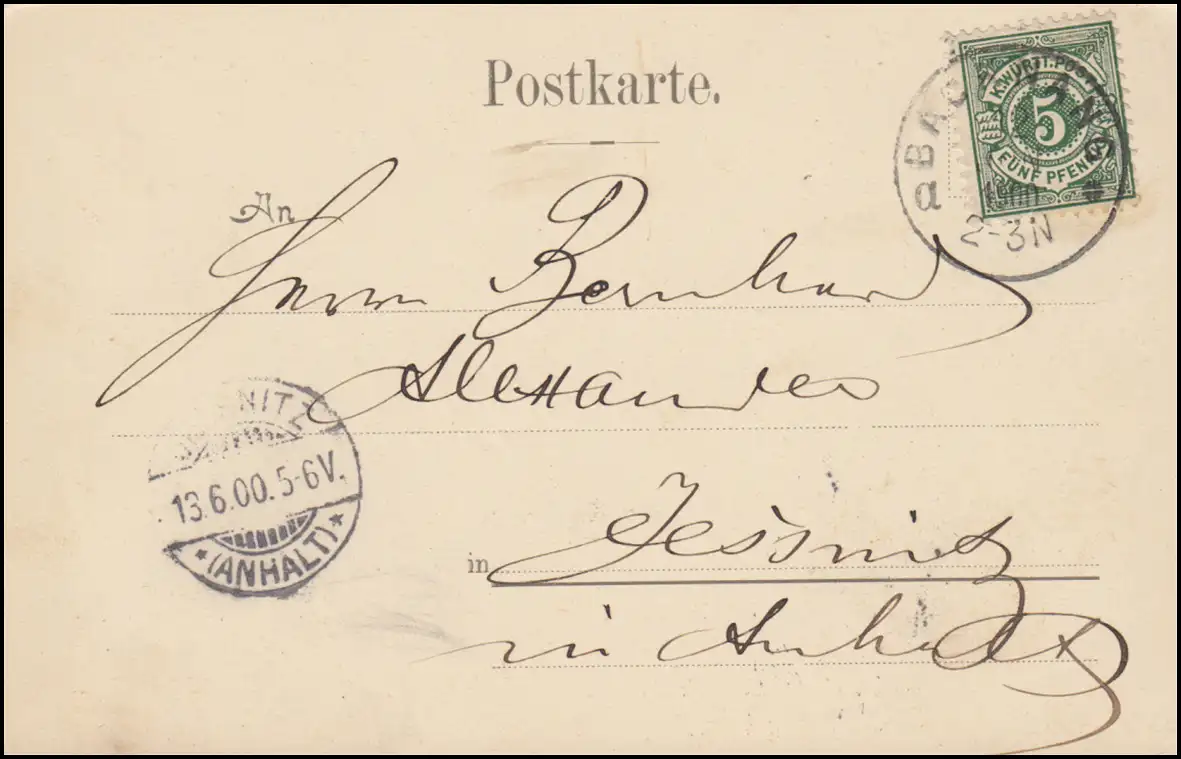 Postkarte.
K.WÜRTT.POST
5
FÜNF PFENNIG
a
2-3N
An
Herrn Bernhard
Alexander
NITZ
13.6.00.5-6V.
* (ANHALT) *
in Jessnitz
in Anhalt